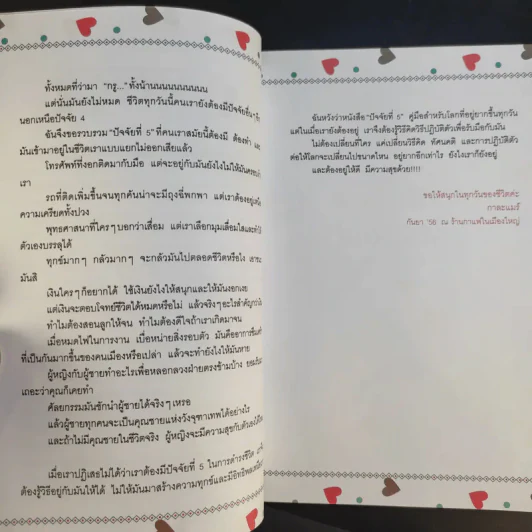 ทั้งหมดที่ว่ามา "กรู..."ทั้งน้านนนนนนนนนน
แต่นั่นมันยังไม่หมด ชีวิตทุกวันนี้คนเรายังต้องมีปัจจัยอื่นๆอีก
นอกเหนือปัจจัย 4
ฉันจึงขอรวบรวม "ปัจจัยที่ 5" ที่คนเราสมัยนี้ต้องมี ต้องทำ
มันเข้ามาอยู่ในชีวิตเราแบบแยกไม่ออกเสียแล้ว
โทรศัพท์ที่งอกติดมากับมือ แต่จะอยู่กับมันยังไงไม่ให้
เรา
รถที่ติดเพิ่มขึ้นจนทุกคนน่าจะมีถุงฉี่พกพา แต่เราต้องอยู่
ความเครียดทั้งปวง
พุทธศาสนาที่ใครๆบอกว่าเสื่อม แต่เราเลือกมุมเลื่อมใส
ตัวเองบรรลุได้
ทุกข์มากๆ กลัวมากๆ จะกลัวมันไปตลอดชีวิตหรือไง
มันสิ
เงินใครๆก็อยากได้ ใช้เงินยังไงให้สนุกและให้มันงอกเงย
แต่เงินจะตอบโจทย์ชีวิตได้หมดหรือไม่ แล้วจริงๆอะไรสำคัญกว่า
ทำไมต้องสอนลูกให้จน ทำไมต้องดีใจถ้าเราเกิดมาจน
เมื่อหมดไฟในการงาน เบื่อหน่ายสิ่งรอบตัว มันคืออาการ
ที่เป็นกันมากขึ้นของคนเมืองหรือเปล่า แล้วจะทำยังไงให้มันหาย
ผู้หญิงกับผู้ชายทำอะไรเพื่อหลอกลวงฝ่ายตรงข้ามบ้าง
เถอะว่าคุณก็เคยทำ
ศัลยกรรมมันชักนำผู้ชายได้จริงๆเหรอ
แล้วผู้ชายทุกคนจะเป็นคุณชายแห่งวังจุฑาเทพได้อย่างไร
และถ้าไม่มีคุณชายในชีวิตจริง ผู้หญิงจะมีความสุขกับตัวเอง
เมื่อเราปฏิเสธไม่ได้ว่าเราต้องมีปัจจัยที่ 5 ในการดำรงชีวิต
ต้องรู้วิธีอยู่กับมันให้ได้ ไม่ให้มันมาสร้างความทุกข์และมีอิทธิพล
ฉันหวังว่าหนังสือ"ปัจจัยที่ 5" คู่มือสำหรับโลกที่อยู่ยากขึ้นทุกวัน
แต่ในเมื่อเรายังต้องอยู่ เราจึงต้องรู้วิธีคิดวิธีปฏิบัติตัวเพื่อรับมือกับมัน
ไม่ต้องเปลี่ยนที่ใคร แค่เปลี่ยนวิธีคิด ทัศนคติ และการปฏิบัติตัว
ต่อให้โลกจะเปลี่ยนไปขนาดไหน อยู่ยากอีกเท่าไร ยังไงเราก็ยังอยู่
และต้องอยู่ให้ดี มีความสุขด้วย!!!!
ขอให้สนุกในทุกวันของชีวิตค่ะ
กาละแมร์
กันยา '56 ณ ร้านกาแฟในเมืองใหญ่